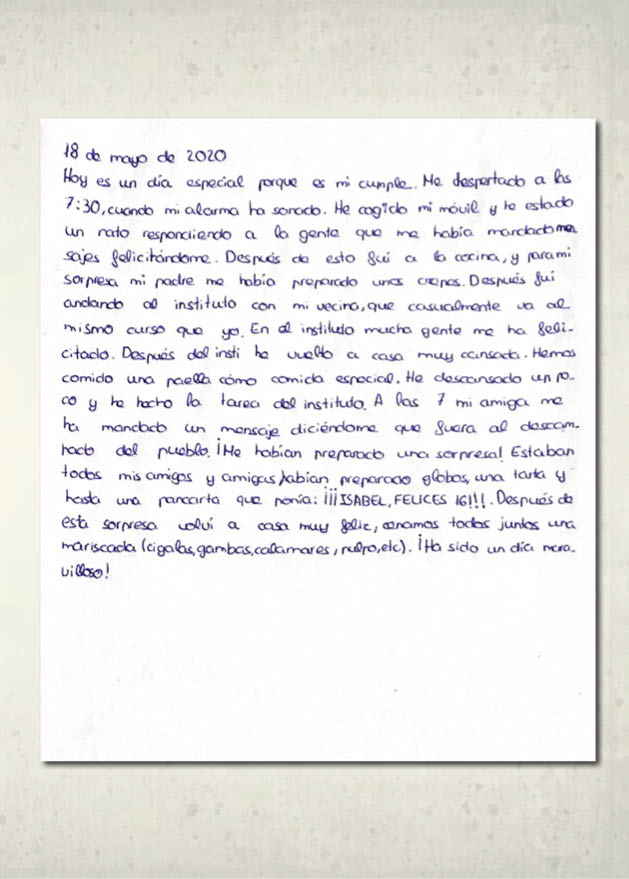 18 de mayo de 2020
Hoy es un día especial porque es mi cumple. Me despertado a las
7:30, cuando mi alarma ha sonado. He cogido mi móvil y he estado
un rato respondiendo a la gente que me había mandado men
sajes felicitándome. Después de esto fui a la cocina, y para mi
sorpresa mi padre me había preparado unos crepes. Después fui
andando al instituto con mi vecina, que casualmente va al
mismo curso que yo. En el instituto mucha gente me ha feli-
citado. Después del insti he vuelto a casa muy cansada. Hemos
comido una paella cómo comida especial. He descansado un po-
co y he hecho la tarea del instituto. A las 7 mi amiga me
ha mandado un mensaje diciéndome que fuera al descam-
hado del pueblo. ¡Me habían preparado una sorpresa! Estaban
todos mis amigos y amigas, habían preparado globos, una tarta y
hasta una pancarta que ponía: ¡¡¡ISABEL, FELICES 16!!!. Después de
esta sorpresa volví a casa muy feliz, cenamos todos juntos una
mariscada (cigalas, gambas, calamares, pulpo, etc). ¡Ha sido un día mara-
villoso!